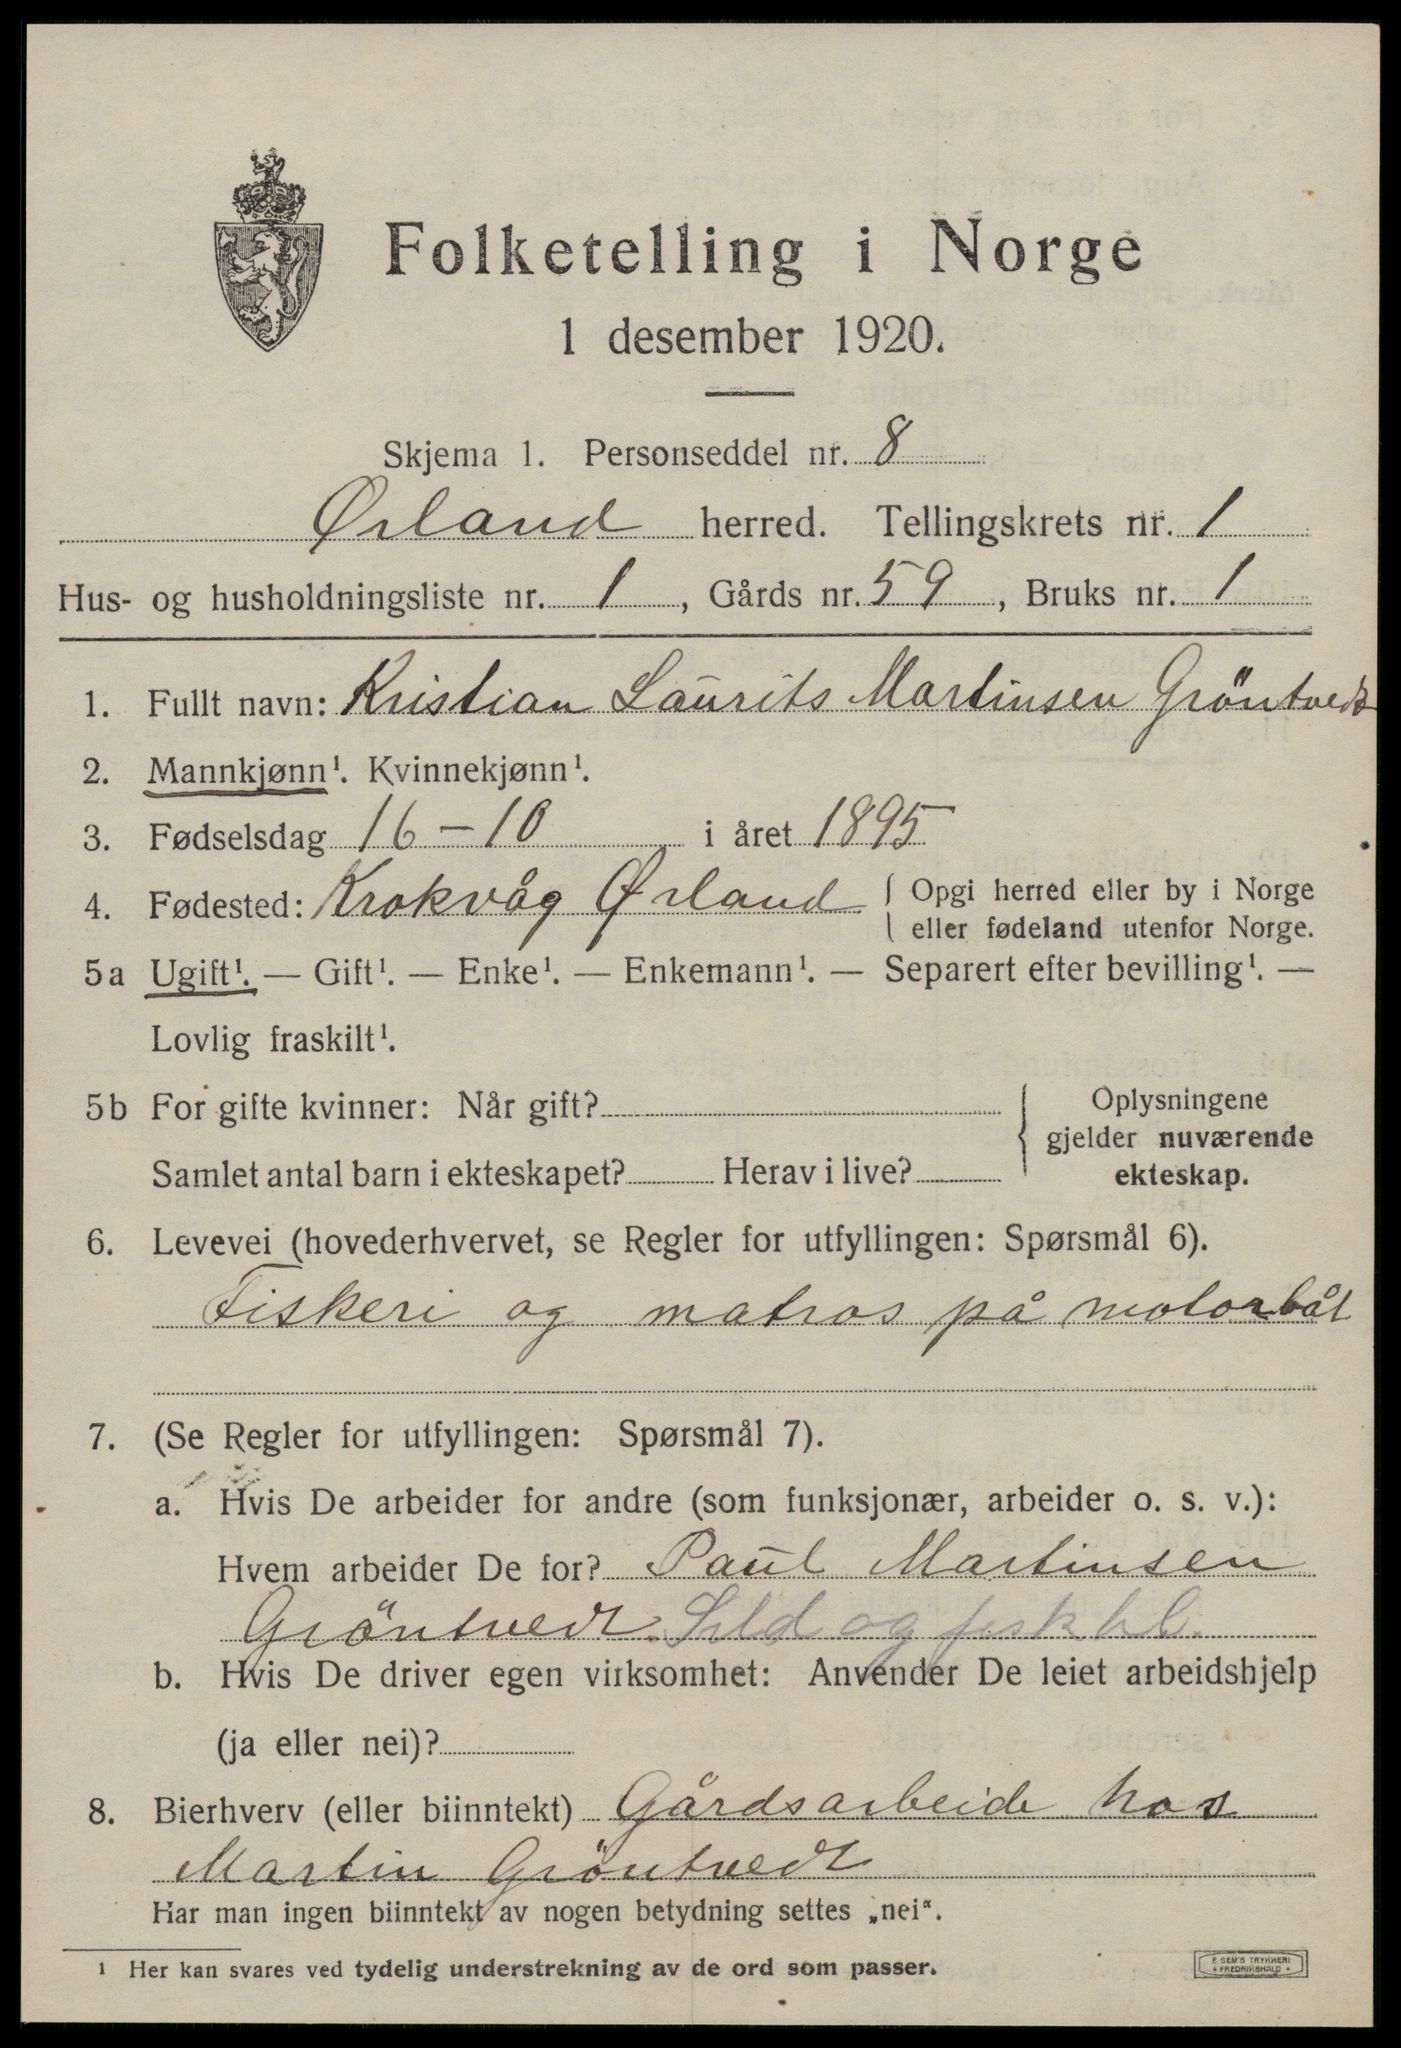 Folketelling i Norge
1 desember 1920.
Skjema 1. Personseddel nr. 8
Ørland herred. Tellingskrets nr. 1
Hus- og husholdningsliste nr. 1, Gårds nr. 59, Bruks nr. 1
1. Fullt navn: Kristian Laurits Martinsen Gröntvedt
2. Mannkjønn¹. Kvinnekjønn¹.
3. Fødselsdag 16-10 i året 1895
4. Fødested: Krokvåg Ørland { Opgi herred eller by i Norge
eller fødeland utenfor Norge.
5a Ugift¹. — Gift¹. — Enke¹. — Enkemann¹. — Separert efter bevilling¹. —
Lovlig fraskilt¹.
5b For gifte kvinner: Når gift?
Samlet antal barn i ekteskapet? Herav i live?
Oplysningene
gjelder nuværende
ekteskap.
6. Levevei (hovederhvervet, se Regler for utfyllingen: Spørsmål 6).
Fiskeri og matros på motorbåt
7. (Se Regler for utfyllingen: Spørsmål 7).
a. Hvis De arbeider for andre (som funksjonær, arbeider o. s. v.):
Hvem arbeider De for? Paul Martinsen
Gröntvedt. Sild og fiskhl.
b. Hvis De driver egen virksomhet: Anvender De leiet arbeidshjelp
(ja eller nei)?
8. Bierhverv (eller biinntekt) Gårdsarbeide hos
Martin Gröntvedt
Har man ingen biinntekt av nogen betydning settes „nei“.
¹ Her kan svares ved tydelig understrekning av de ord som passer.
F. SEM'S TRYKKERI
FREDRIKSHALD